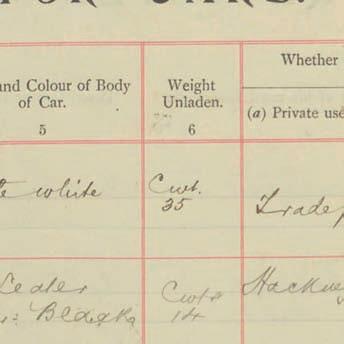 FOR CARS.
and Colour of Body
of Car.
5
Weight
Unladen.
6
Whether
(a) Private use
white
Cwt.
35
Trade
Cwts
14
Hackney